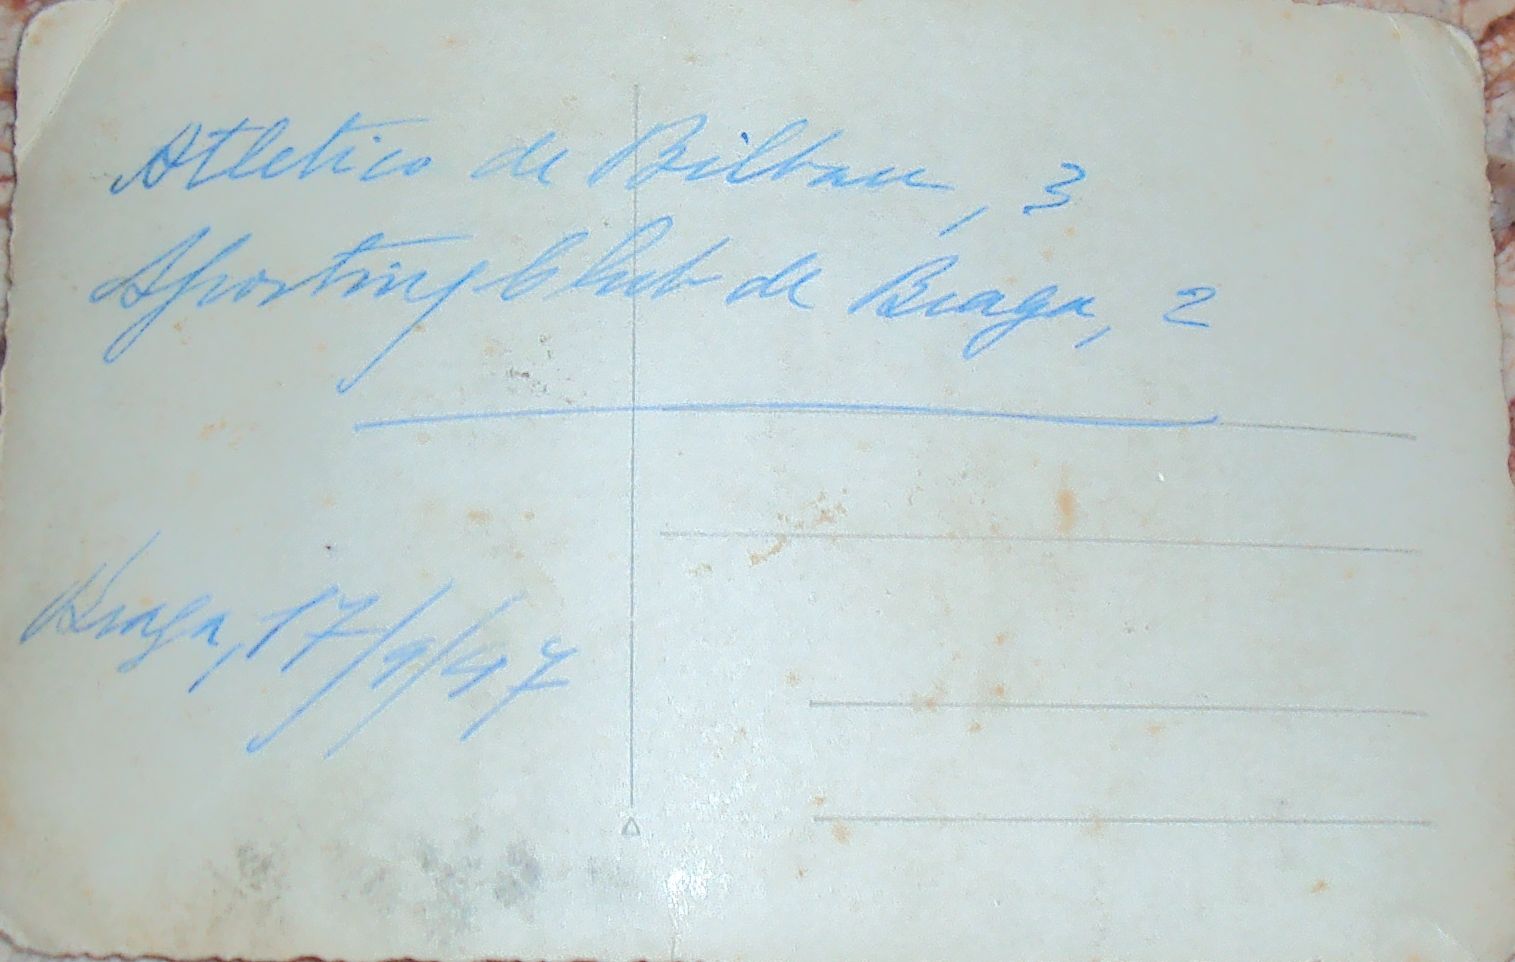 Atletico de Bilbau, 3
Sporting Club de Braga, 2
Braga, 17/9/47